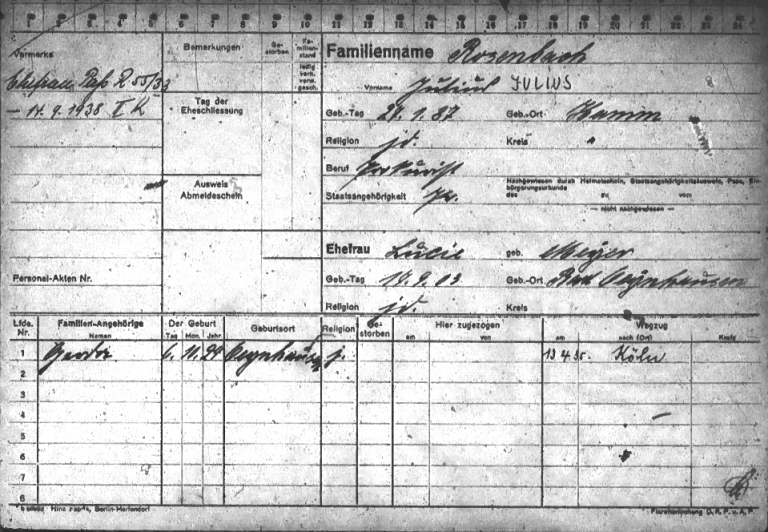 1 2 3 4 5 6 7 8 9 10 11 12 13 14 15 16 17 18 19 20 21 22 23 24
Vermerke
Ehefrau Paß R 55/33
— 14.9.1938 I K
Personal-Akten Nr.
Bemerkungen
Ge-
storben
Fa-
milien-
stand
ledig
verh.
verw.
gesch.
Tag der
Eheschliessung
Ausweis
Abmeldeschein
Familienname Rosenbach
Vorname Julius JULIUS
Geb.-Tag 21.1.87 Geb.-Ort Hamm
Religion jd. Kreis
Beruf Prokurist
Nachgewiesen durch Heimatschein, Staatsangehörigkeitsausweis, Pass, Ein-
bürgerungsurkunde
des zu vom
Staatsangehörigkeit Pr. — nicht nachgewiesen —
Ehefrau Lucie geb. Meyer
Geb.-Tag 19.9.03 Geb.-Ort Bad Oeynhausen
Religion jd. Kreis
Lfde. Nr. Familien-Angehörige Namen Der Geburt Tag Mon. Jahr Geburtsort Religion Ge-storben Hier zugezogen am von Wegzug am nach (Ort) Kreis
1 Gerda 6. 11. 29 Oeynhausen j. 13.4.35. Köln
2
3
4
5
6
7
8
Berlin-Mariendorf D.R.P. u. A.P.